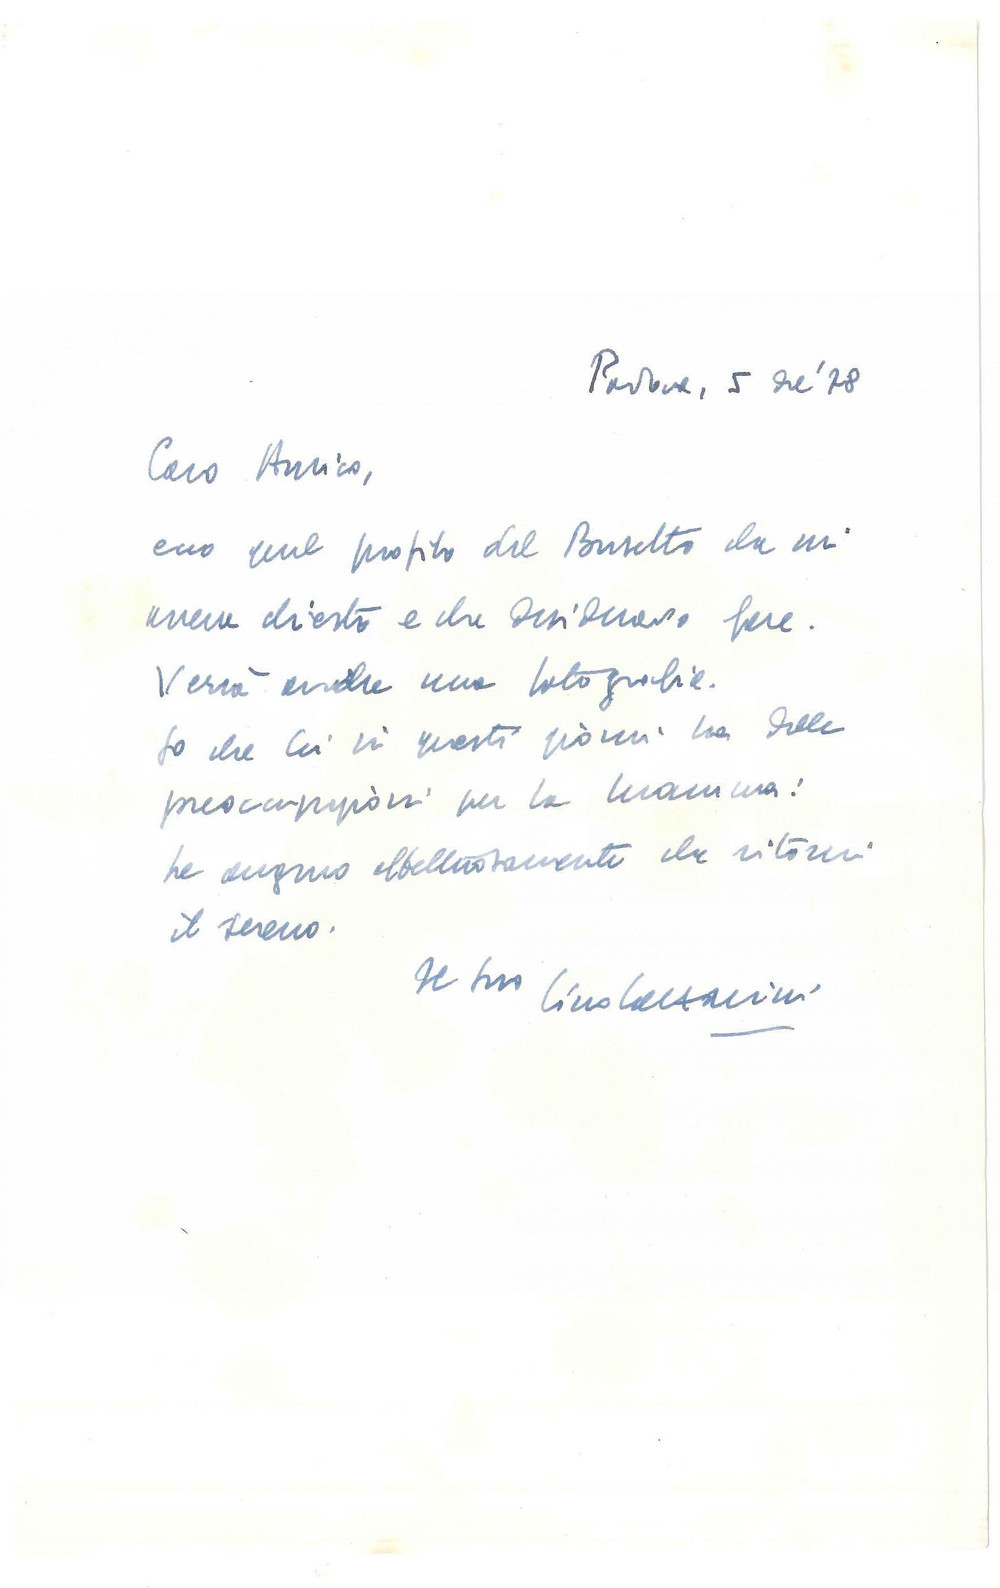 Padova, 5 dic '78
Caro Amico,
ecco quel profilo del Busetto che mi
aveva chiesto e che desideravo fare.
Verrà anche una fotografia.
So che Lei in questi giorni ha delle
preoccupazioni per la mamma:
Le auguro affettuosamente che ritorni
il sereno.
suo